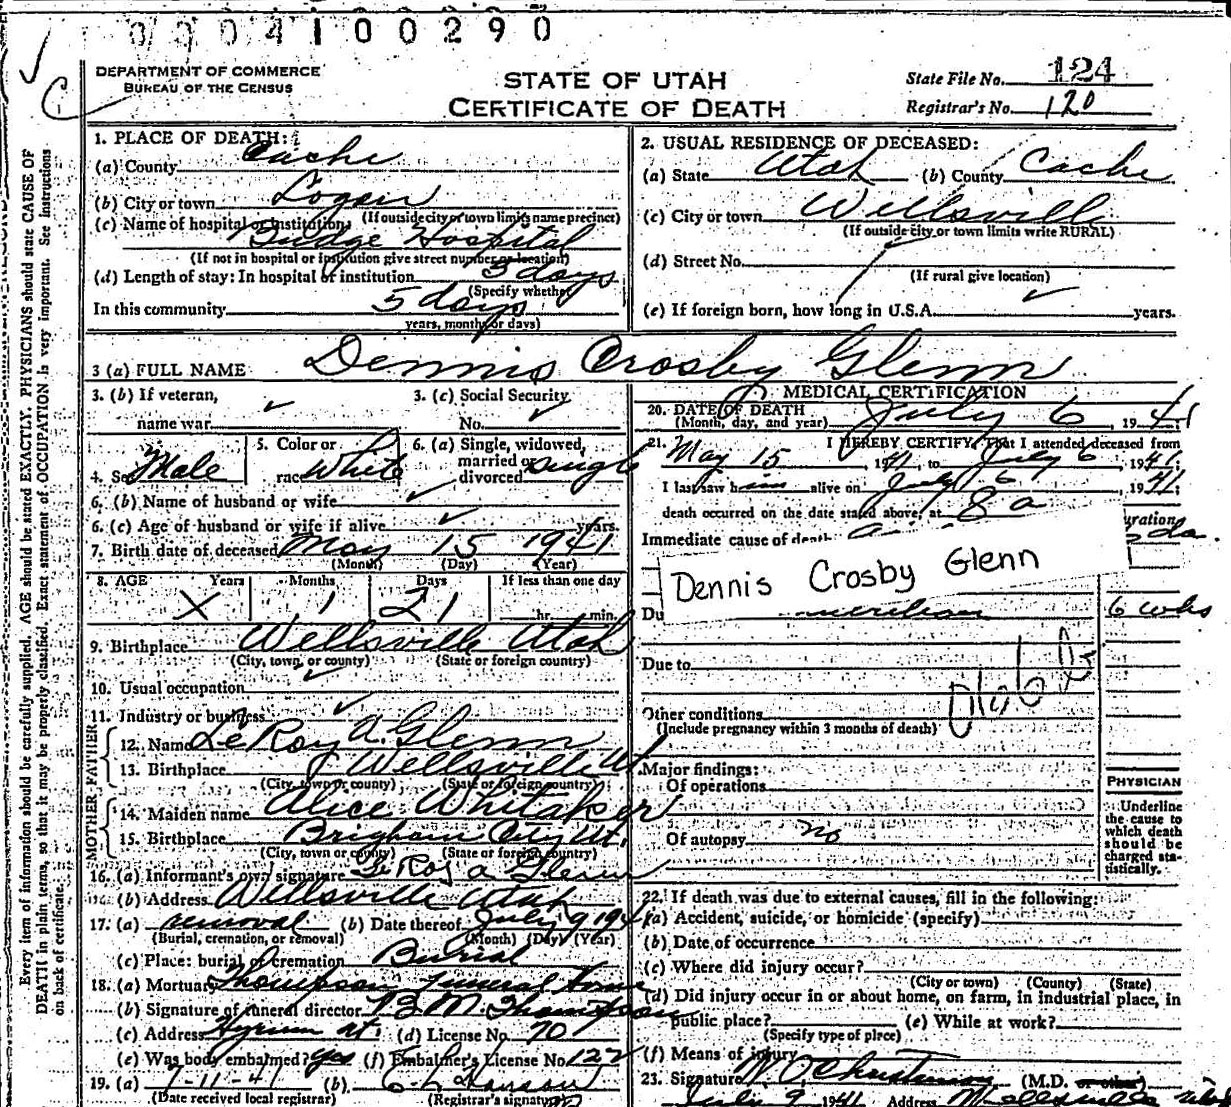 0004100290
DEPARTMENT OF COMMERCE
BUREAU OF THE CENSUS
STATE OF UTAH
CERTIFICATE OF DEATH
State File No. 124
Registrar's No. 120
Every item of information should be carefully supplied. AGE should be stated EXACTLY. PHYSICIANS should state CAUSE OF
DEATH in plain terms, so that it may be properly classified. Exact statement of OCCUPATION is very important. See Instructions
on back of certificate.
1. PLACE OF DEATH:
(a) County Cache
(b) City or town Logan
(If outside city or town limits name precinct)
(c) Name of hospital or institution:
Budge Hospital
(If not in hospital or institution give street number or location)
(d) Length of stay: In hospital or institution 3 days
(Specify whether
In this community 5 days
years, months or days)
2. USUAL RESIDENCE OF DECEASED:
(a) State Utah (b) County Cache
(c) City or town Wellsville
(If outside city or town limits write RURAL)
(d) Street No.
(If rural give location)
(e) If foreign born, how long in U.S.A. years.
3 (a) FULL NAME Dennis Crosby Glenn
3. (b) If veteran,
name war
3. (c) Social Security
No.
4. Sex Male
5. Color or
race White
6. (a) Single, widowed,
married or
divorced single
6. (b) Name of husband or wife
6. (c) Age of husband or wife if alive years.
7. Birth date of deceased May 15 1941
(Month) (Day) (Year)
8. AGE Years Months Days If less than one day
X 1 21 hr. min.
9. Birthplace Wellsville Utah
(City, town, or county) (State or foreign country)
10. Usual occupation
11. Industry or business
FATHER
12. Name LeRoy A Glenn
13. Birthplace Wellsville Ut
(City, town or county) (State or foreign country)
MOTHER
14. Maiden name Alice Whitaker
15. Birthplace Brigham City Ut.
(City, town or county) (State or foreign country)
16. (a) Informant's own signature Le Roy A Glenn
(b) Address Wellsville Utah
17. (a) removal (b) Date thereof July 9 1941
(Burial, cremation, or removal) (Month) (Day) (Year)
(c) Place: burial or cremation Burial
18. (a) Mortuary Thompson Funeral Home
(b) Signature of funeral director B M Thompson
(c) Address Hyrum Ut. (d) License No. 70
(e) Was body embalmed? yes (f) Embalmer's License No. 122
19. (a) 7-11-41 (b)
(Date received local registrar) (Registrar's signature)
MEDICAL CERTIFICATION
20. DATE OF DEATH July 6, 1941
(Month, day, and year)
21. I HEREBY CERTIFY, That I attended deceased from
May 15 1941, to July 6, 1941;
I last saw him alive on July 6, 1941;
death occurred on the date stated above, at 8 a
Immediate cause of death
uration
da.
Dennis Crosby Glenn
Du 6 wks
Due to
Other conditions
(Include pregnancy within 3 months of death)
Major findings:
Of operations
Of autopsy no
PHYSICIAN
Underline
the cause to
which death
should be
charged sta-
tistically.
22. If death was due to external causes, fill in the following:
(a) Accident, suicide, or homicide (specify)
(b) Date of occurrence
(c) Where did injury occur?
(City or town) (County) (State)
(d) Did injury occur in or about home, on farm, in industrial place, in
public place? (e) While at work?
(Specify type of place)
(f) Means of injury
23. Signature (M.D. or other)
July 9 1941 Address Wellsville Utah